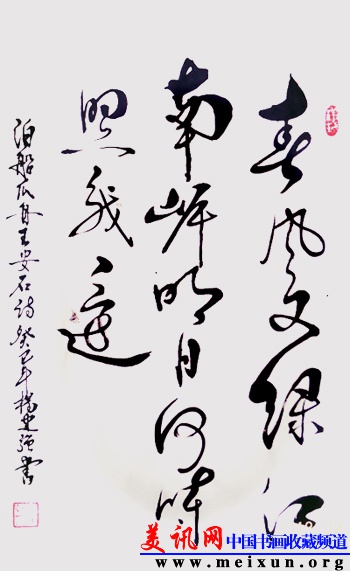 春风又绿江
南岸明月何时
照我还
泊船瓜舟王安石诗癸巳年杨强书
美讯网 中国书画收藏频道
www.meixun.org